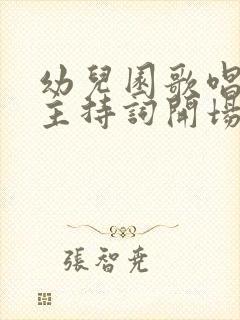 幼兒園歌唱
主持詞開場
張智堯